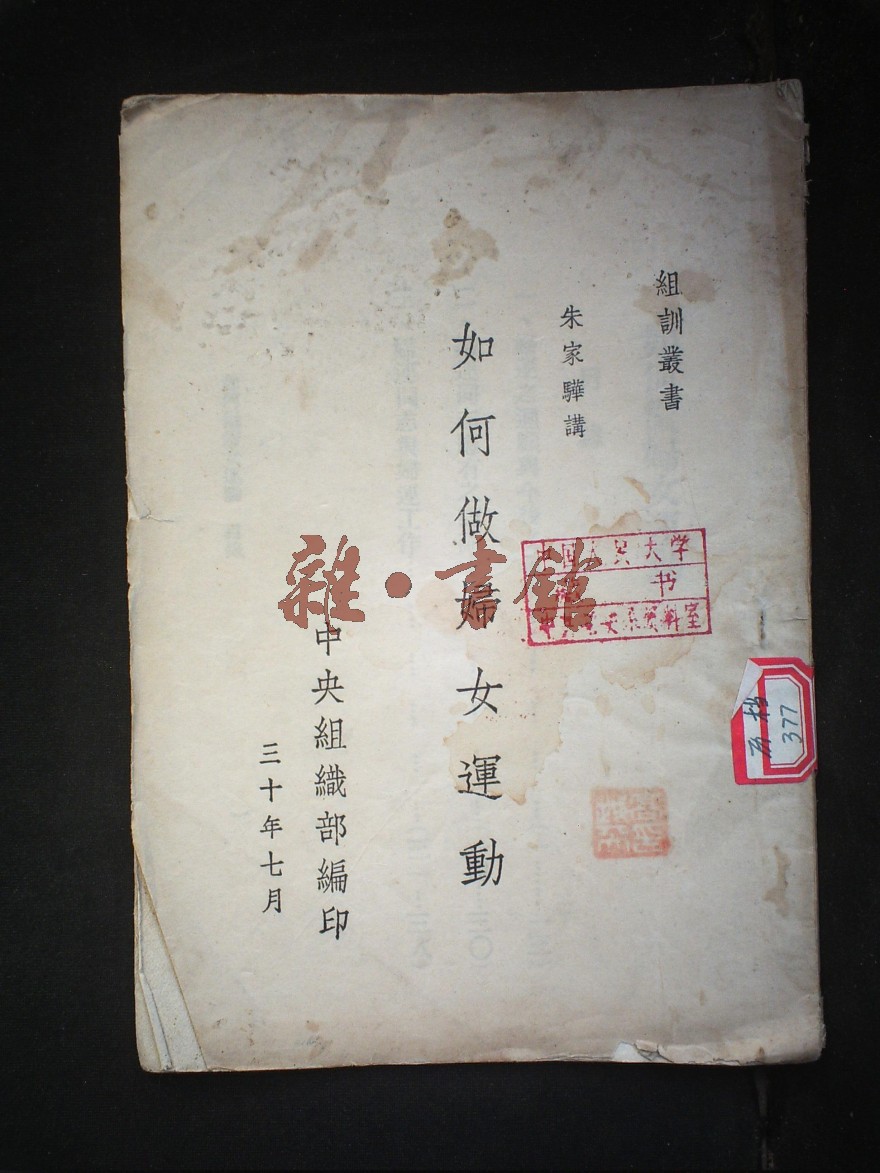 組訓叢書
朱家驊講
如何做婦女運動
中央組織部編印
三十年七月
中国人民大学
书
资料室
377
雜·書館